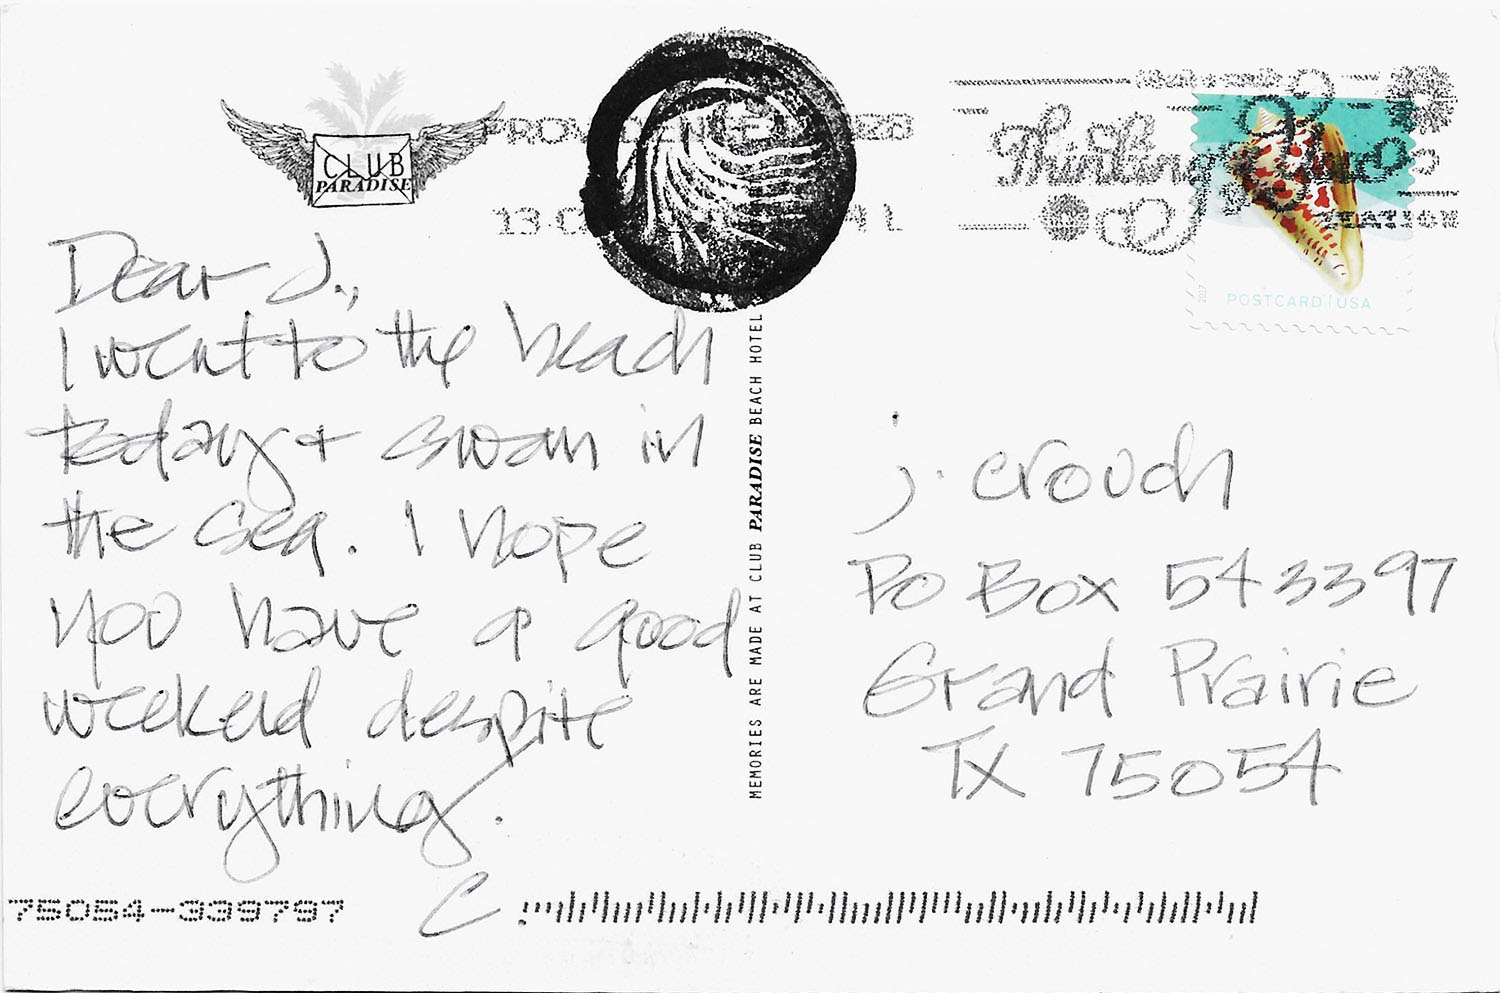 CLUB
PARADISE
13
Thinking
POSTCARD USA
2017
Dear J.,
I went to the beach
today + swam in
the sea. I hope
you have a good
weekend despite
everything.
C.
MEMORIES ARE MADE AT CLUB PARADISE BEACH HOTEL
j. crouch
PO Box 543397
Grand Prairie
TX 75054
75054-339797